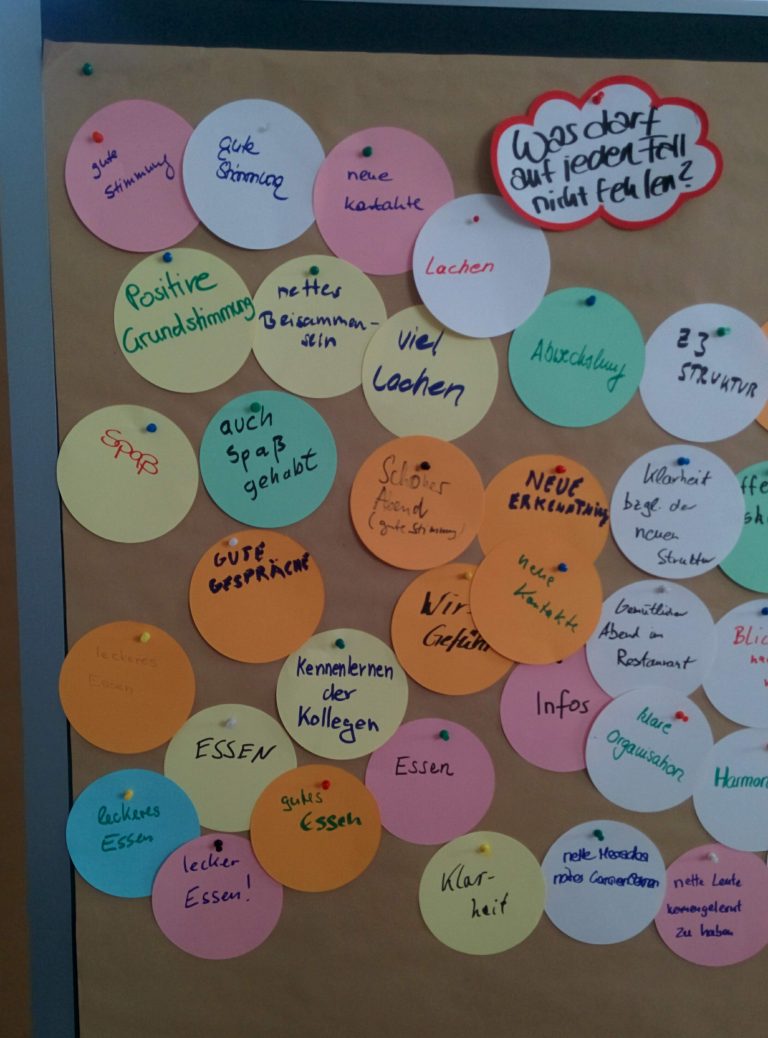 Was darf
auf jeden Fall
nicht fehlen?
gute
Stimmung
Gute
Stimmung
neue
Kontakte
Lachen
Positive
Grundstimmung
nettes
Beisammen-
sein
viel
Lachen
Abwechslung
Z3
STRUKTUR
Spaß
auch
Spaß
gehabt
Schöner
Abend
(gute Stimmung)
NEUE
ERKENNTNIS
Klarheit
bzgl. der
neuen
Struktur
GUTE
GESPRÄCHE
Wir-
Gefühl
neue
Kontakte
Gemütlicher
Abend im
Restaurant
leckeres
Essen
Kennenlernen
der
Kollegen
Infos
klare
Organisation
ESSEN
Essen
Harmon
leckeres
Essen
gutes
Essen
lecker
Essen!
Klar-
heit
nette
nette Leute
kennengelernt
zu haben